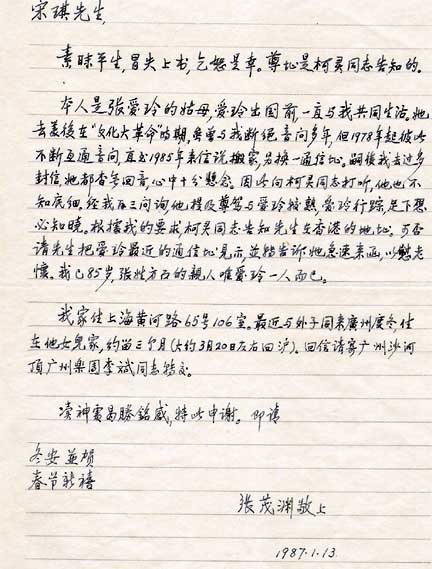 宋琪先生,
素昧平生,冒失上书,乞恕是幸。尊址是柯灵同志告知的。
本人是张爱玲的姑母,爱玲出国前一直与我共同生活。她
去美後在“文化大革命”时期,虽曾与我断绝音问多年,但1978年起彼此
不断互通音问,直到1985年来信说搬家,另换一通信址。嗣後我去过多
封信,她都杳无回音,心中十分悬念。因此向柯灵同志打听,他也不
知底细,经我再三询问他提及尊驾与爱玲较熟,爱玲行踪,足下想
必知晓。根据我的要求柯灵同志告知先生在香港的地址,可否
请先生把爱玲最近的通信址见示,並转告诉她急速来函,以慰老
怀。我已85岁,张姓方面的親人唯爱玲一人而已。
我家住上海黄河路65号106室。最近与外子同来廣州度冬住
在他女兒家,约留三个月(大约3月20日左右回沪)。回信请寄广州沙河
顶广州乐团李斌同志转交。
渎神处曷勝銘感,特此申谢。即请
冬安並贺
春节新禧
张茂渊敬上
1987.1.13.